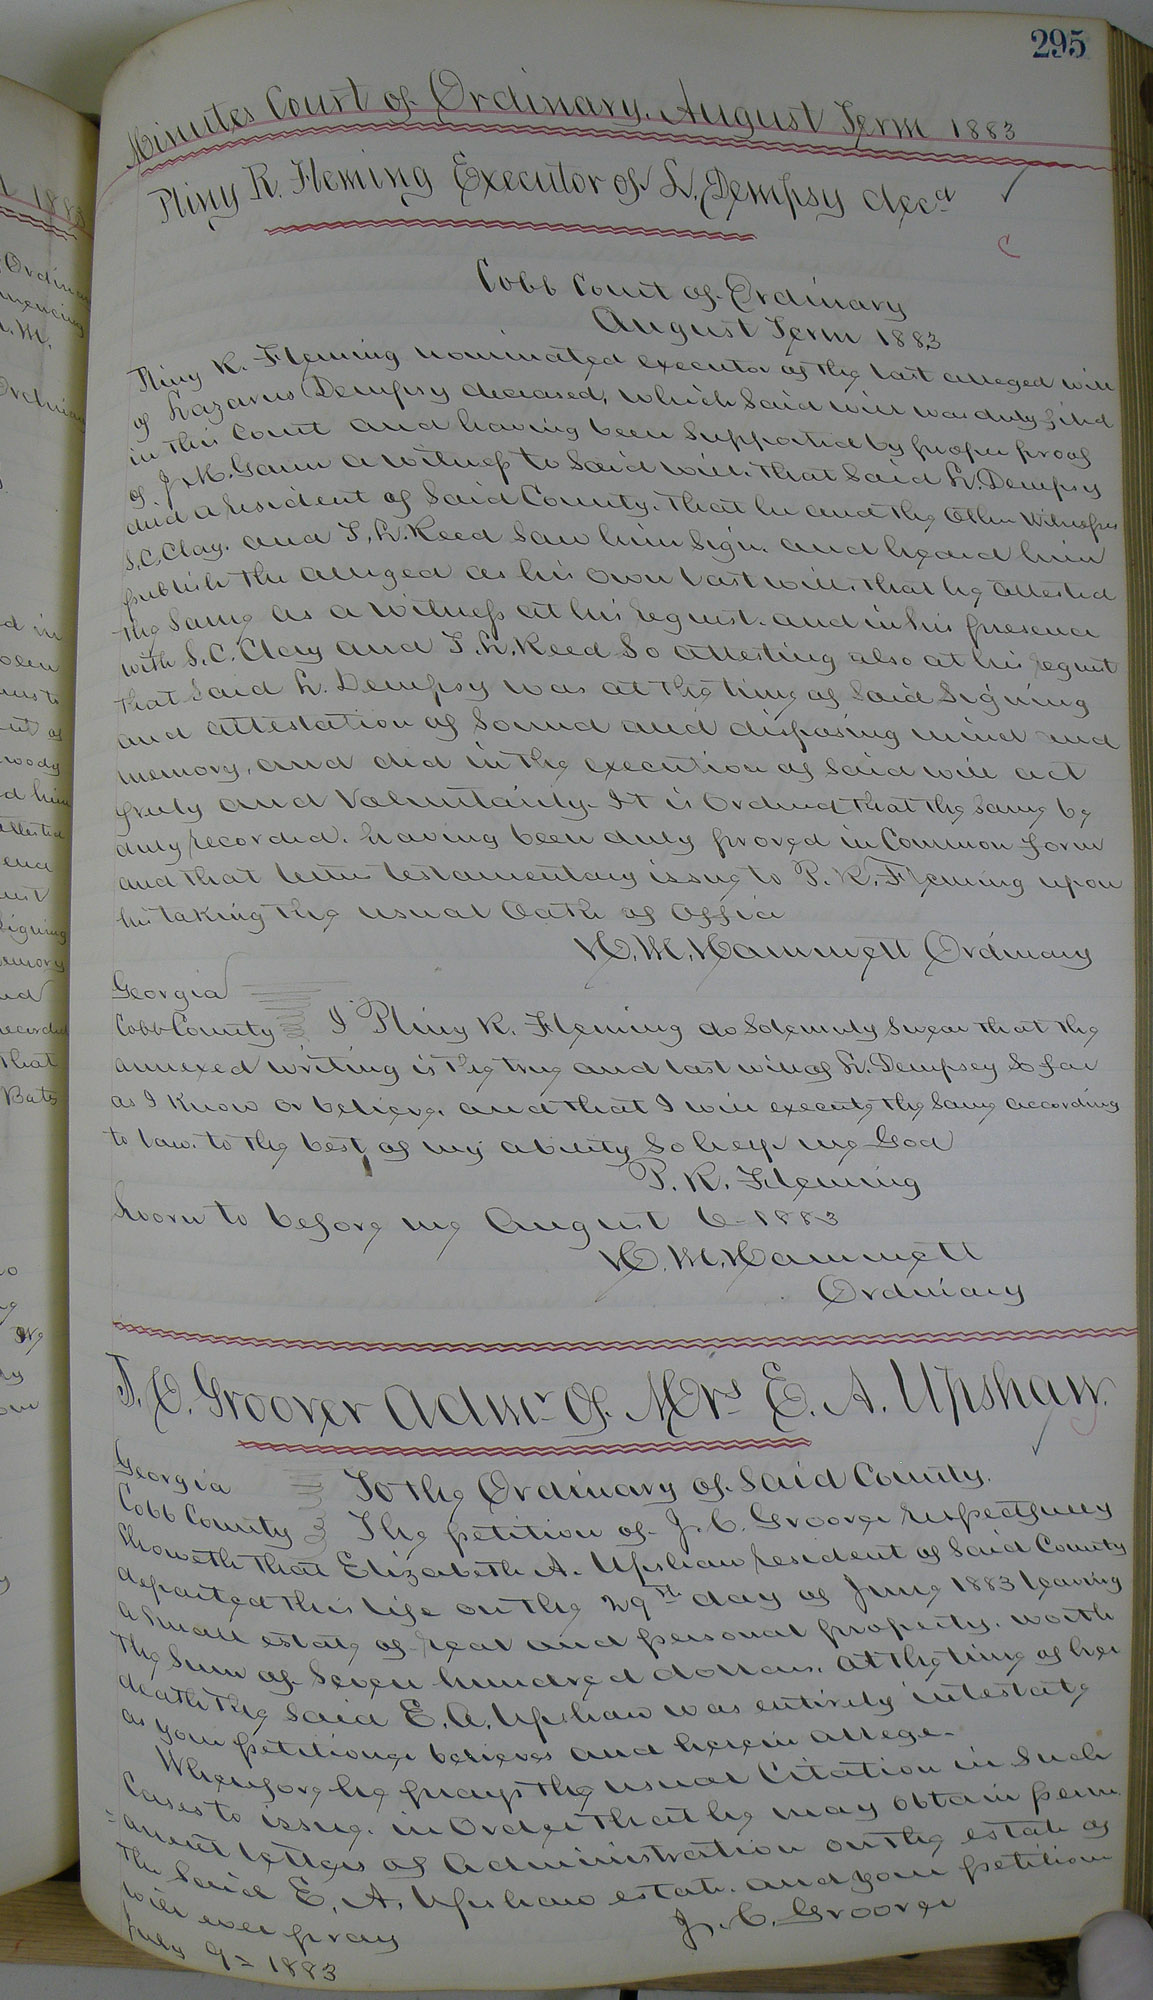 295
Minutes Court of Ordinary, August Term 1883
Pliny R. Fleming Executor of L. Dempsy decd
Cobb Court of Ordinary
August Term 1883
Pliny R. Fleming nominated executor of the last alleged will
of Lazarus Dempsy deceased, which said will was duly filed
in this Court and having been supported by proper proof
of J. M. Gann a witness to said will. that said L. Dempsy
died a resident of said County. that he and the other witnesses
S. C. Clay. and T. L. Reed saw him sign. and heard him
publish the alleged as his own last will. that he attested
the same as a witness at his request. and in his presence
with S. C. Clay and T. L. Reed so attesting also at his request
that said L. Dempsy was at the time of said signing
and attestation of sound and disposing mind and
memory, and did in the execution of said will act
freely and voluntarily. It is ordered that the same be
duly recorded. having been duly proved in Common form
and that letters testamentary issue to P. R. Fleming upon
his taking the usual oath of office
H. M. Hammett Ordinary
Georgia
Cobb County I Pliny R. Fleming do solemnly swear that the
annexed writing is the true and last will of L. Dempsey so far
as I know or believe, and that I will execute the same according
to law. to the best of my ability So help me God
P. R. Fleming
Sworn to before me August 6 - 1883
H. M. Hammett
Ordinary
J. C. Groover Admr. of Mrs E. A. Upshaw.
Georgia To the Ordinary of said County.
Cobb County The petition of J. C. Groover respectfully
showeth that Elizabeth A. Upshaw resident of said County
departed this life on the 29th day of June 1883 leaving
a small estate of real and personal property, worth
the sum of seven hundred dollars. At the time of her
death the said E. A. Upshaw was entirely intestate
as your petitioner believes and herein alleges.
Wherefore he prays the usual Citation in such
cases to issue. in order that he may obtain perm
=anent letters of administration on the estate of
the said E. A. Upshaw estate. and your petitioner
will ever pray J. C. Groover
July 9= 1883